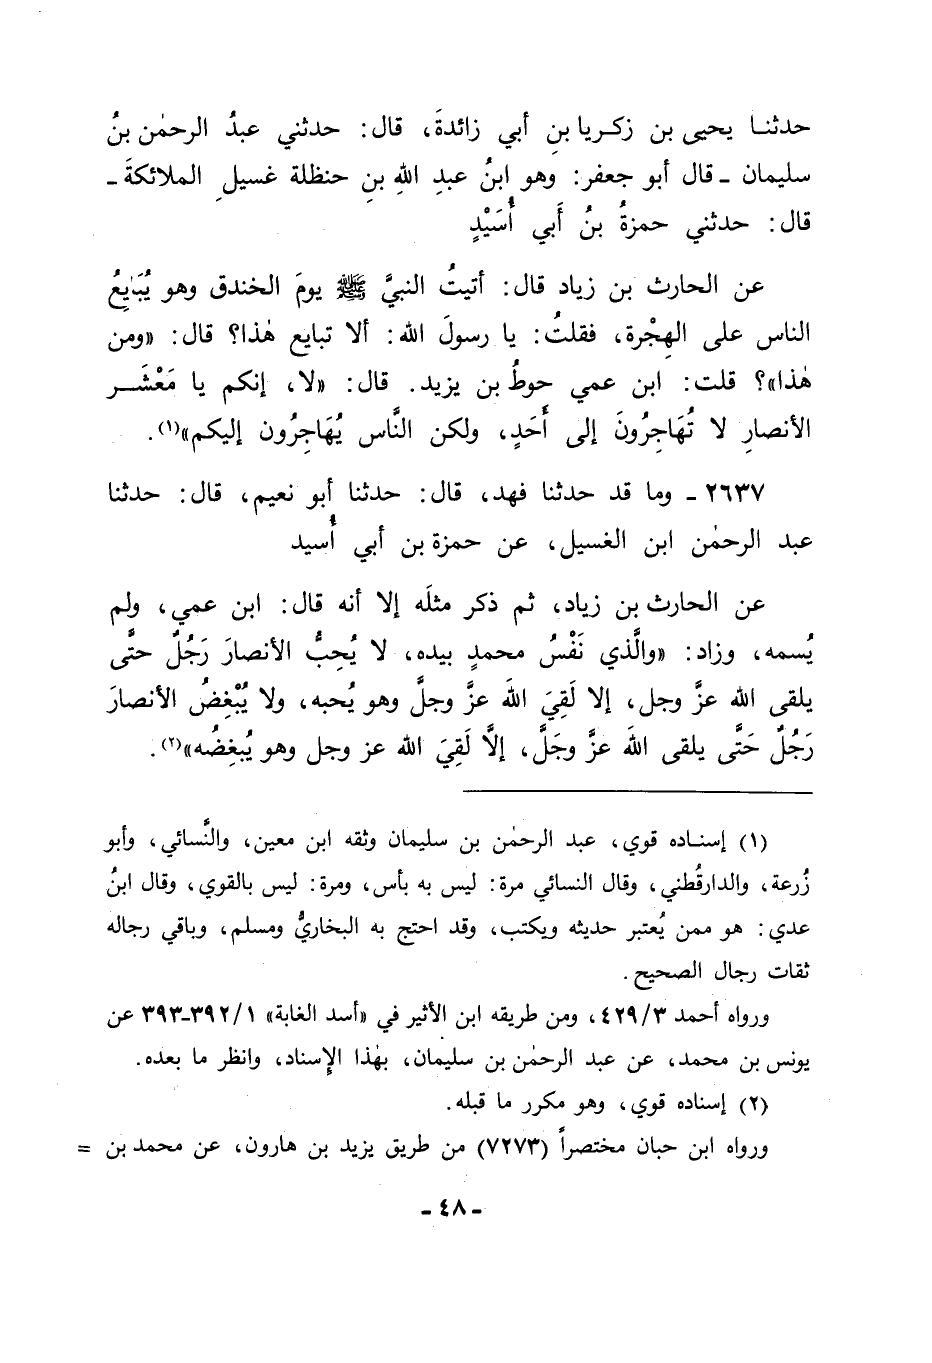 حدثنا يحيى بن زكريا بنِ أبي زائدةَ، قال: حدثني عبدُ الرحمٰن بنُ
سليمان ـ قال أبو جعفر: وهو ابنُ عبدِ اللهِ بنِ حنظلة غسيلِ الملائكةَ ـ
قال: حدثني حمزةُ بنُ أَبي أُسَيْدٍ
عن الحارث بن زياد قال: أتيتُ النبيَّ ﷺ يومَ الخندق وهو يُبَايِعُ
الناس على الهِجْرة، فقلتُ: يا رسولَ الله: ألا تبايع هٰذا؟ قال: «ومن
هٰذا»؟ قلت: ابن عمي حوطُ بن يزيد. قال: «لا، إنكم يا مَعْشَـر
الأنصارِ لا تُهَاجِرُونَ إلى أَحَدٍ، ولكن النَّاس يُهَاجِرُون إليكم»(١).
٢٦٣٧ ـ وما قد حدثنا فهد، قال: حدثنا أبو نعيم، قال: حدثنا
عبد الرحمٰن ابن الغسيل، عن حمزة بن أبي أُسيد
عن الحارث بن زياد، ثم ذكر مثلَه إلا أنه قال: ابن عمي، ولم
يُسمه، وزاد: «والَّذي نَفْسُ محمدٍ بيده، لا يُحِبُّ الأنصارَ رَجُلٌ حتَّى
يلقى الله عزَّ وجل، إلا لَقِيَ اللهَ عزَّ وجلَّ وهو يُحبه، ولا يُبْغِضُ الأنصارَ
رَجُلٌ حَتَّى يلقى اللهَ عزَّ وجَلَّ، إلَّا لَقِيَ الله عز وجل وهو يُبغِضُه»(٢).
(١) إسنـاده قوي، عبد الرحمٰن بن سليمان وثقه ابن معين، والنَّسائي، وأبو
زُرعة، والدارقُطني، وقال النسائي مرة: ليس به بأس، ومرة: ليس بالقوي، وقال ابنُ
عدي: هو ممن يُعتبر حديثه ويكتب، وقد احتج به البخاريُّ ومسلم، وباقي رجاله
ثقات رجال الصحيح.
ورواه أحمد ٤٢٩/٣، ومن طريقه ابن الأثير في «أسد الغابة» ٣٩٢/١-٣٩٣ عن
يونس بن محمد، عن عبد الرحمٰن بن سليمان، بهٰذا الإسناد، وانظر ما بعده.
(٢) إسناده قوي، وهو مكرر ما قبله.
ورواه ابن حبان مختصراً (٧٢٧٣) من طريق يزيد بن هارون، عن محمد بن =
ـ ٤٨ ـ